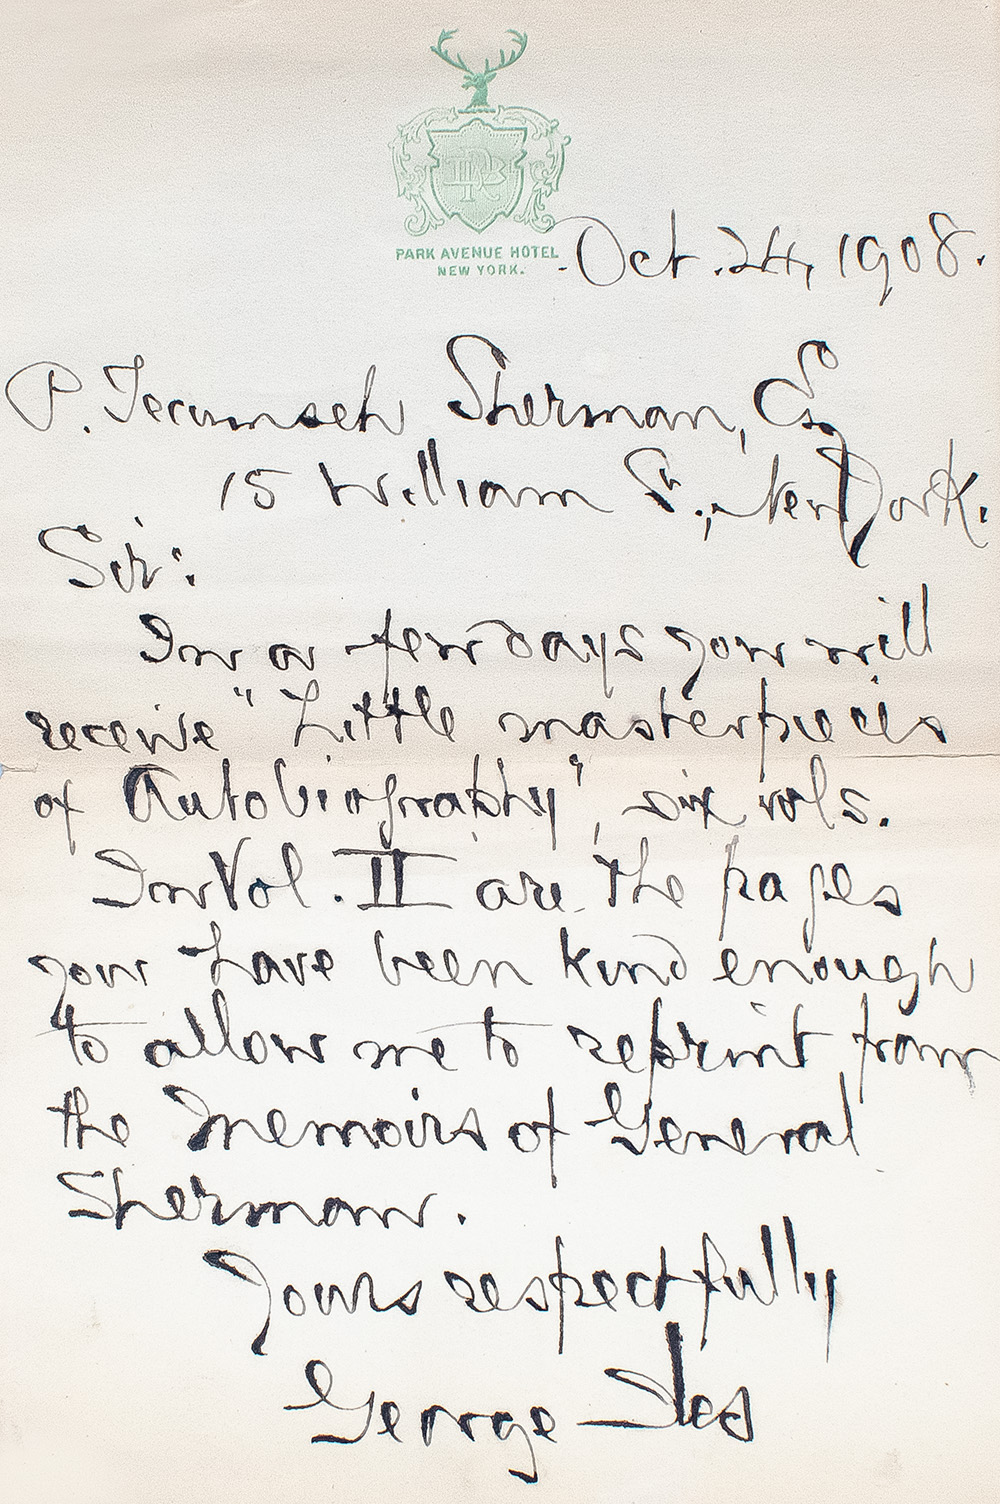 PARK AVENUE HOTEL
NEW YORK.
Oct. 24, 1908.
P. Tecumseh Sherman, Esq
15 William St., New York.
Sir:
In a few days you will
receive "Little masterpieces
of Autobiography", six vols.
In Vol. II are the pages
you have been kind enough
to allow me to reprint from
the Memoirs of General
Sherman.
Yours respectfully
George Iles